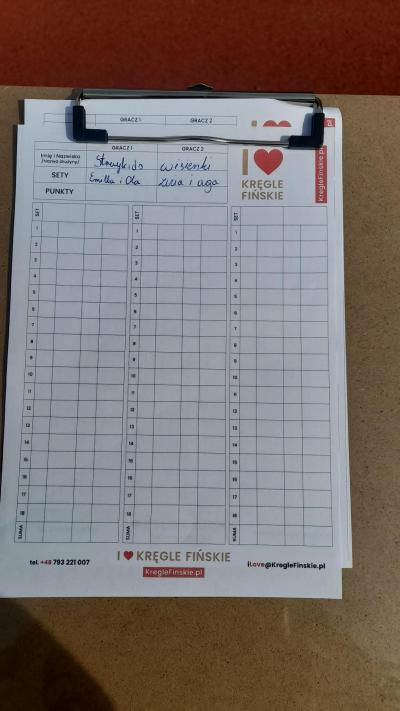 GRACZ 1 GRACZ 2
GRACZ 1 GRACZ 2
Imię i Nazwisko
/Nazwa drużyny/
wisienki
SETY Emilka i Ola Zuza i aga
PUNKTY
I
KRĘGLE
FIŃSKIE
KregleFinskie.pl
SET SET SET
1 1 1
2 2 2
3 3 3
4 4 4
5 5 5
6 6 6
7 7 7
8 8 8
9 9 9
10 10 10
11 11 11
12 12 12
13 13 13
14 14 14
15 15 15
16 16 16
17 17 17
18 18 18
SUMA SUMA SUMA
tel. +48 793 221 007
I KRĘGLE FIŃSKIE
KregleFinskie.pl
iLove@KregleFinskie.pl